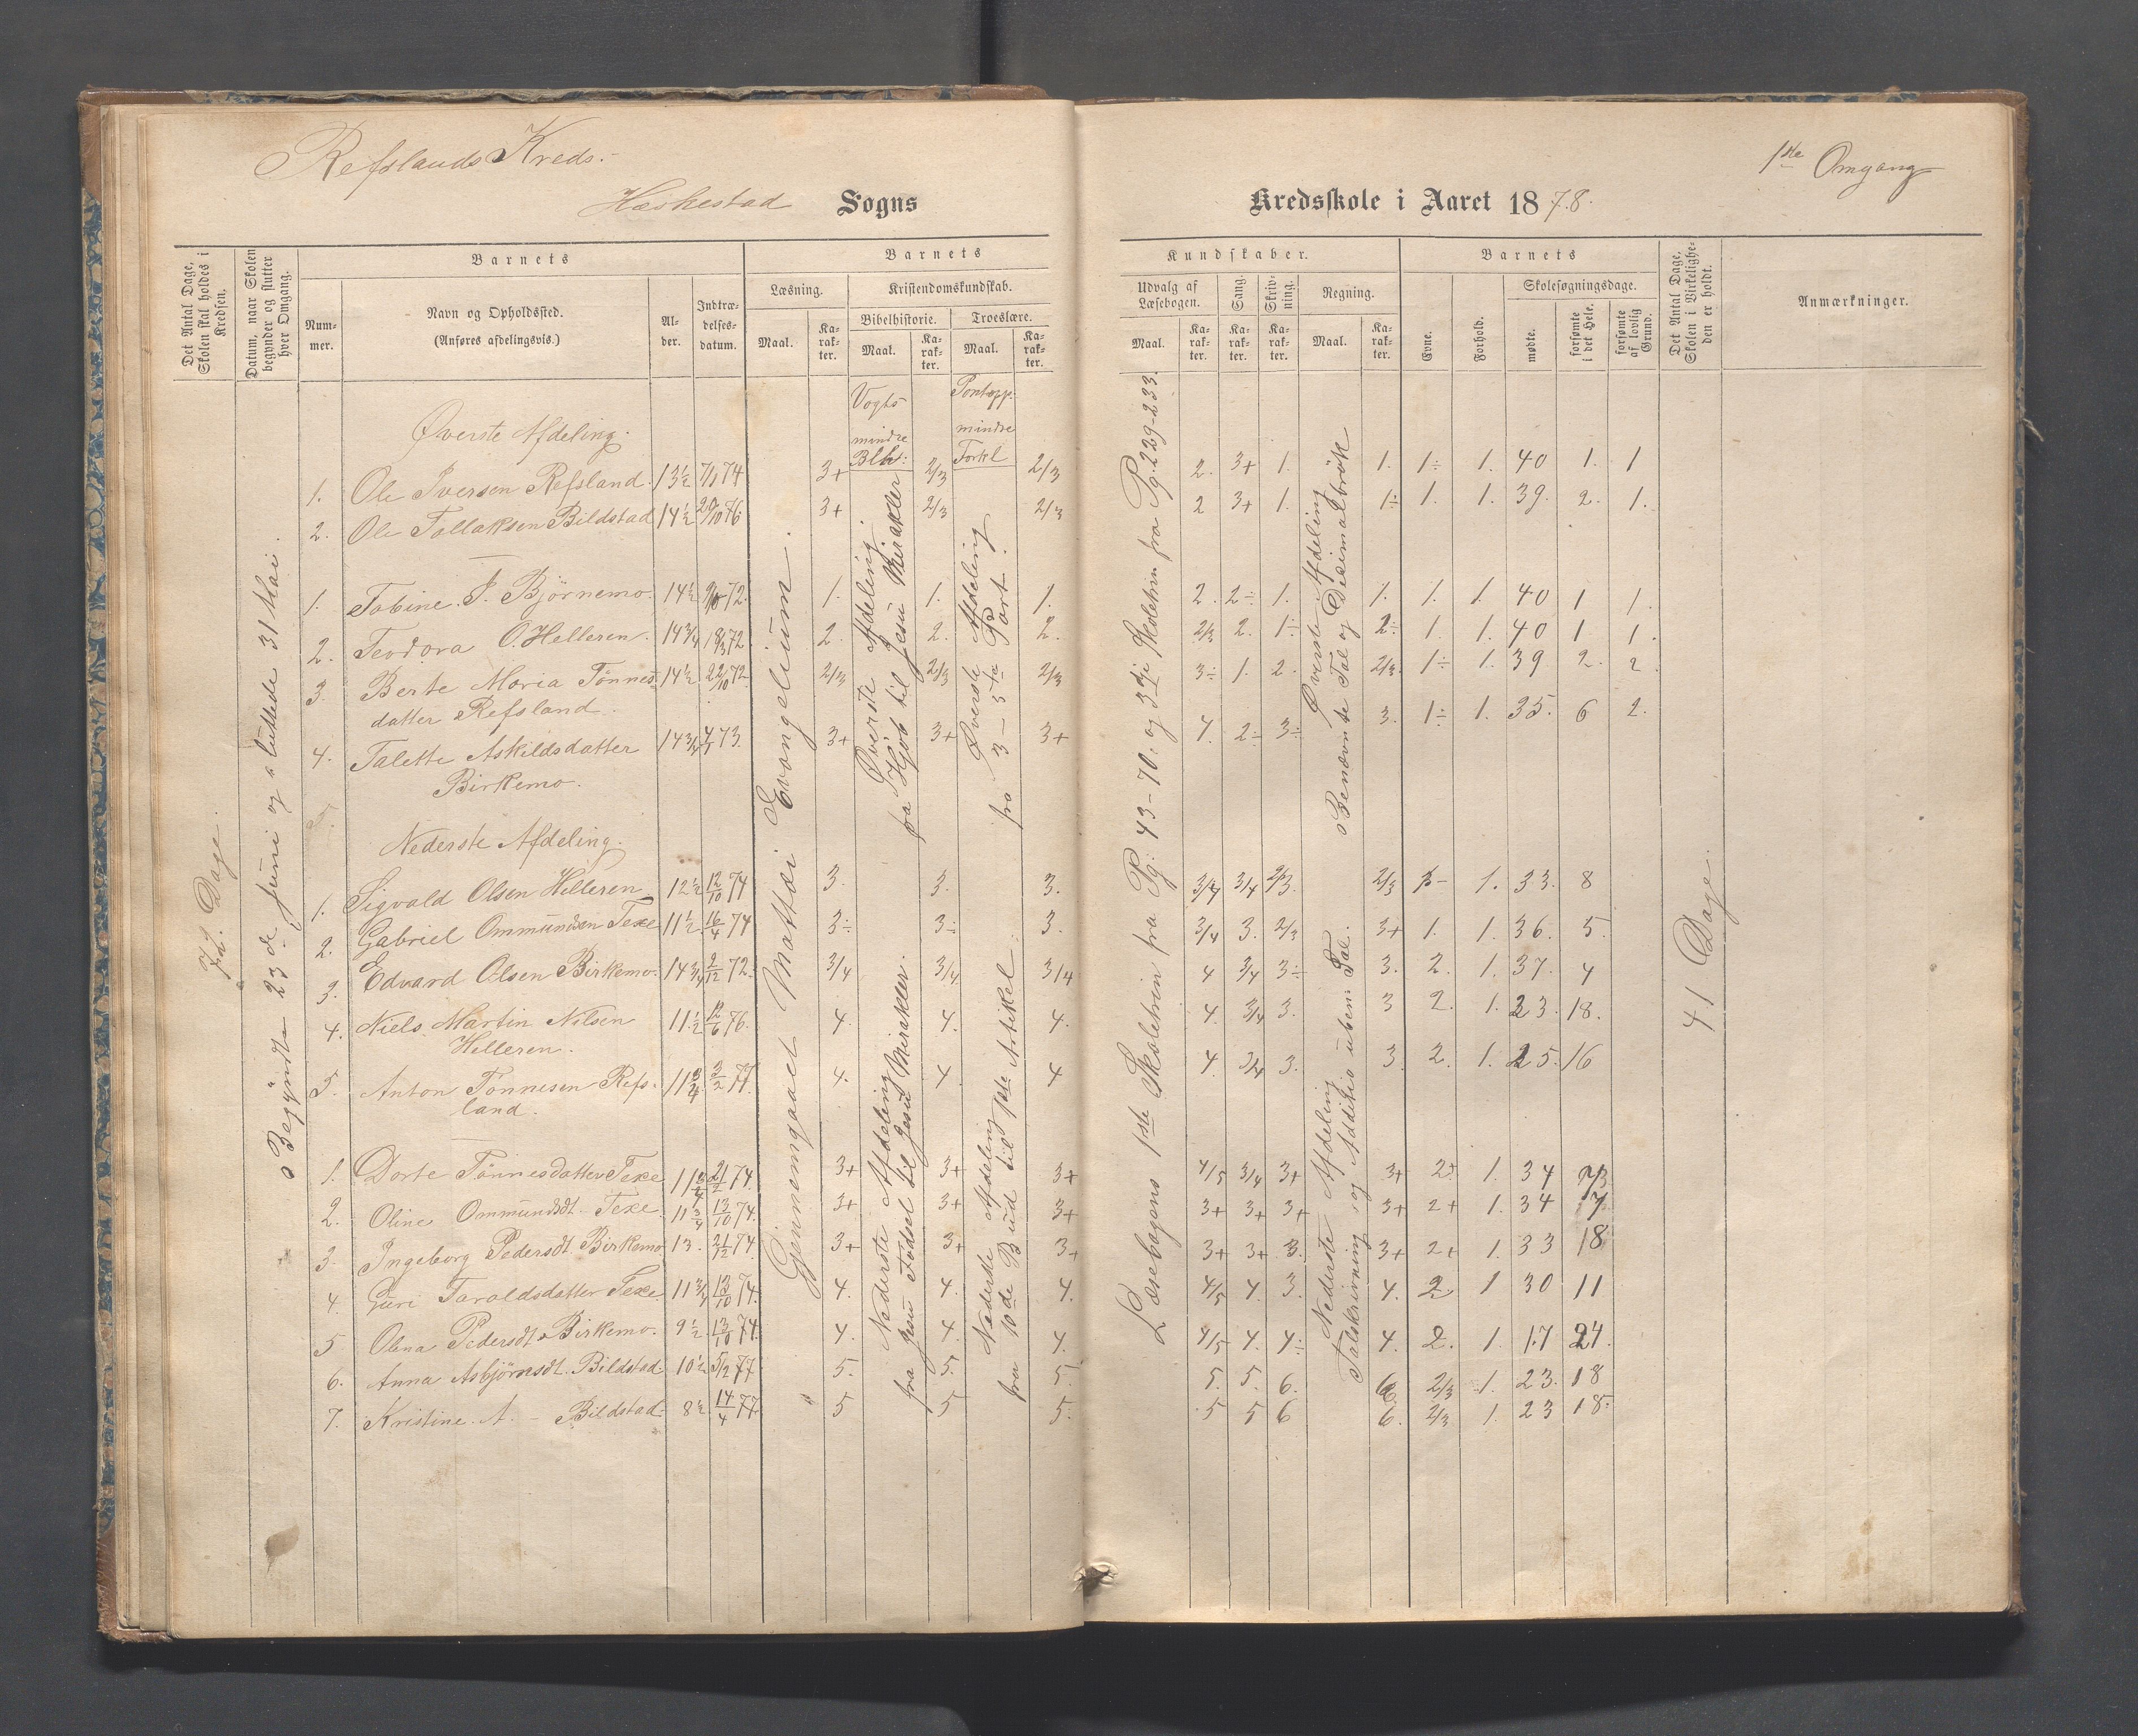 Refslands Kreds.
Heskestad Sogns
Kredsskole i Aaret 1878.
1ste Omgang
Det Antal Dage, Skolen skal holdes i Kredsen.
Datum, naar Skolen begynder og slutter hver Omgang.
Barnets
Nummer.
Navn og Opholdssted.
(Anføres afdelingsvis.)
Alder.
Indtrædelsesdatum.
Barnets
Læsning.
Maal.
Karakter.
Kristendomskundskab.
Bibelhistorie.
Maal.
Karakter.
Troeslære.
Maal.
Karakter.
Kundskaber.
Udvalg af Læsebogen.
Maal.
Karakter.
Sang.
Karakter.
Skrivning.
Karakter.
Regning.
Maal.
Karakter.
Barnets
Evne.
Forhold.
Skolesøgningsdage.
mødte.
forsømte i det Hele.
forsømte af lovlig Grund.
Det Antal Dage, Skolen i Virkeligheden er holdt.
Anmærkninger.
72 Dage.
Begyndte 23de Juni og sluttede 31 Mai.
Gjennemgaaet Mattæi Evangelium.
Vogts mindre Blh:
Pontopp: mindre Forkl
Øverste Afdeling fra Hjob til Jesu Mirakler
Øverste Afdeling fra 3 – 5te Part.
Nederste Afdeling fra Jesu Fødsel til Jesu Mirakler.
Nederste Afdeling fra 10de Bud til 1ste Artikel.
Læsebogens 1ste Skoletrin fra Pg: 43-70. og 3die Skoletrin fra Pg. 229-233.
Øverste Afdeling Benævnte Tal og Desimalbrøk
Nederste Afdeling Talskrivning og Additio i uben: Tal.
41 Dage.
Øverste Afdeling.
1. Ole Iversen Refsland. 13½ 7/1 74 3+ 2/3 2/3 2. 3+ 1. 1. 1÷ 1. 40 1. 1
2. Ole Tollaksen Bildstad 14½ 20/10 76 3+ 2/3 2/3 2 3+ 1. 1÷ 1. 1. 39. 2. 1.
1. Tobine. J. Bjørnemo. 14½ 9/10 72. 1. 1. 1. 2. 2÷ 1. 1. 1. 1. 40 1 1.
2. Teodora O. Helleren. 14¾ 18/3 72. 2. 2. 2. 2/3 2. 1÷ 2÷ 1. 1. 40 1 1.
3. Berte Maria Tönnes- 14½ 22/10 72 2/3 2/3 2/3 3÷ 1. 2. 2/3. 1÷ 1. 39 2. 2.
datter Refsland.
4. Talette Askildsdatter 14¾ 4/1 73. 3+ 3+ 3+ 4. 2÷ 3÷ 3. 1÷ 1. 35. 6 2.
Birkemo.
5.
Nederste Afdeling.
1. Sigvald Olsen Helleren 12½ 12/10 74 3. 3. 3. 3/4 3/4 2/3. 2/3 1. 33. 8
2. Gabriel Ommundsen Texe 11½ 16/4 74 3÷ 3÷ 3. 3/4 3. 2/3 3+ 1. 1. 36. 5.
3. Edvard Olsen Birkemo. 14¾ 2/12 72. 3/4 3/4 3/4 4 3/4 3÷ 3. 2. 1. 37. 4
4. Niels Martin Nilsen 11½ 12/6 76. 4. 4. 4. 4. 3/4 3. 3 2. 1. 23. 18.
Helleren.
5. Anton Tönnesen Refs- 11¾ 3/2 77. 4. 4. 4 4. 3/4 3. 3. 2. 1. 25. 16
land.
1. Dorte Tönnesdatter Texe 11¾ 21/2 74. 3+ 3+ 3+ 4/5 3/4 3+ 3+ 2+ 1. 34
2. Oline Ommundsdt. Texe. 11¾ 13/10 74. 3+ 3+ 3+ 3+ 3+ 3+ 3+ 2+ 1. 34 7.
3. Ingeborg Pedersdt. Birkemo 13. 21/12 74. 3+ 3+ 3+ 3+ 3+ 3. 3+ 2+ 1. 33 18
4. Guri Taraldsdatter Texe. 11¾ 13/10 74. 4. 4. 4. 4/5 4. 3. 4. 2 1 30 11
5 Olena Pedersdt. Birkemo. 9½ 13/10 74. 4. 4. 4. 4/5 4. 4÷ 4. 2. 1. 17 24.
6. Anna Asbjörnsdt. Bildstad. 10½ 5/2 77 5. 5. 5. 5. 5. 6. 6. 2/3 1. 23. 18
7. Kristine. A. – Bildstad. 8½ 14/4 77. 5 5 5. 5 5 6 6. 2/3. 1. 23 18.